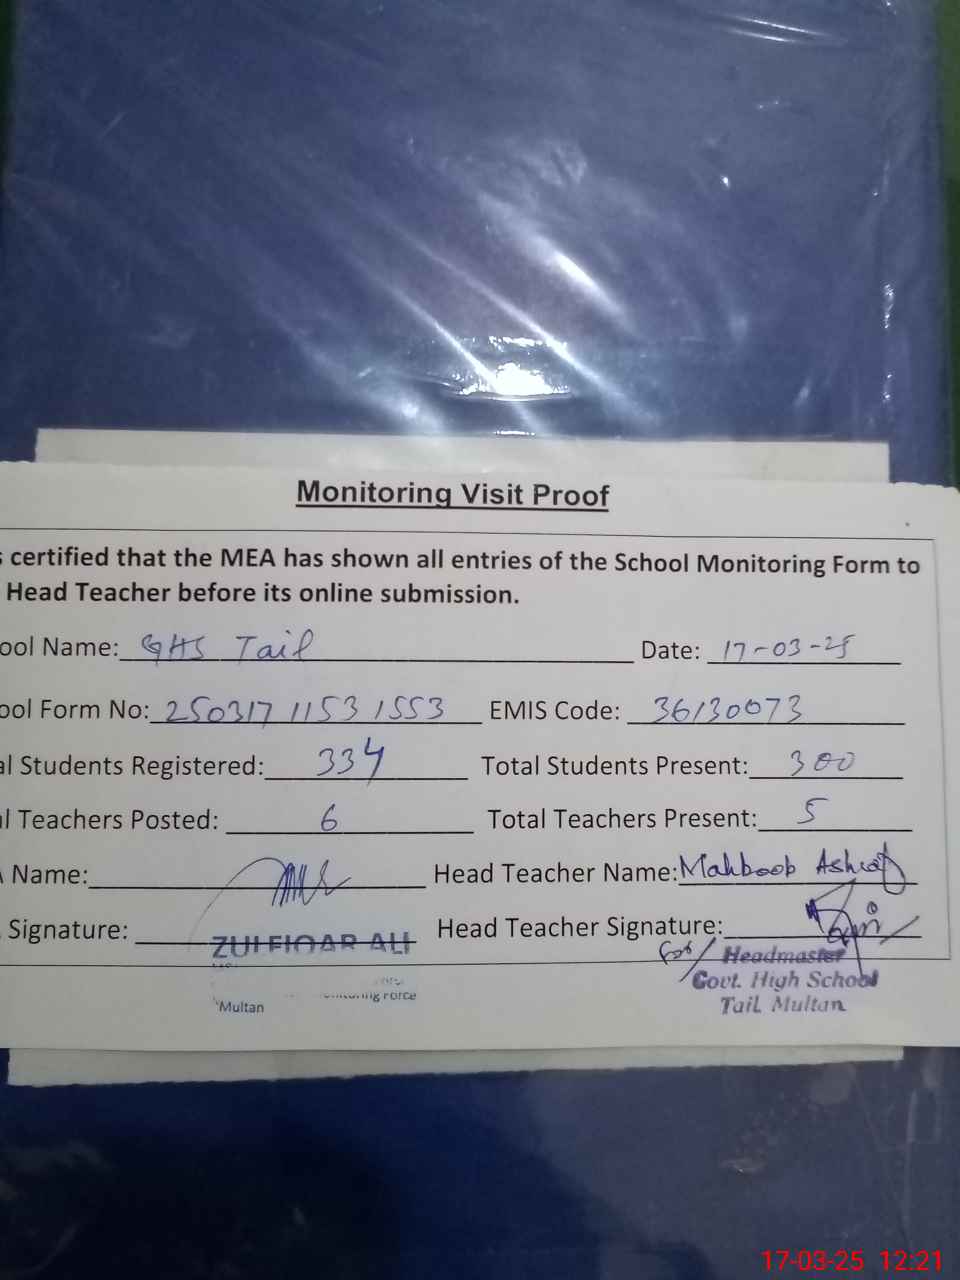 Monitoring Visit Proof
certified that the MEA has shown all entries of the School Monitoring Form to
Head Teacher before its online submission.
ool Name: GHS Tail Date: 17-03-25
ool Form No: 250317 1153 1553 EMIS Code: 36130073
al Students Registered: 334 Total Students Present: 300
l Teachers Posted: 6 Total Teachers Present: 5
Name: Head Teacher Name: Mahboob Ashraf
Signature: Head Teacher Signature:
ZULFIQAR ALI
Multan
for/ Headmaster
Govt. High School
Tail Multan
17-03-25 12:21